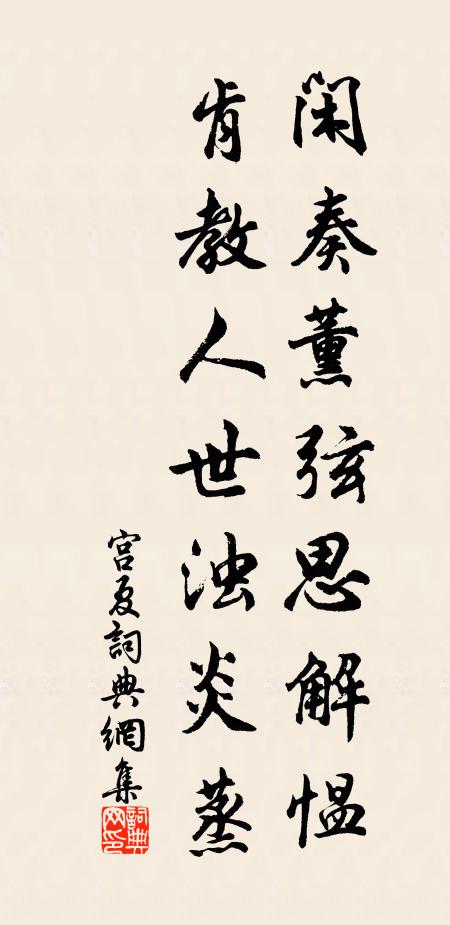 闲奏薰弦思解愠
肯教人世浊炎蒸
宫夏詞典網集
詞典网印